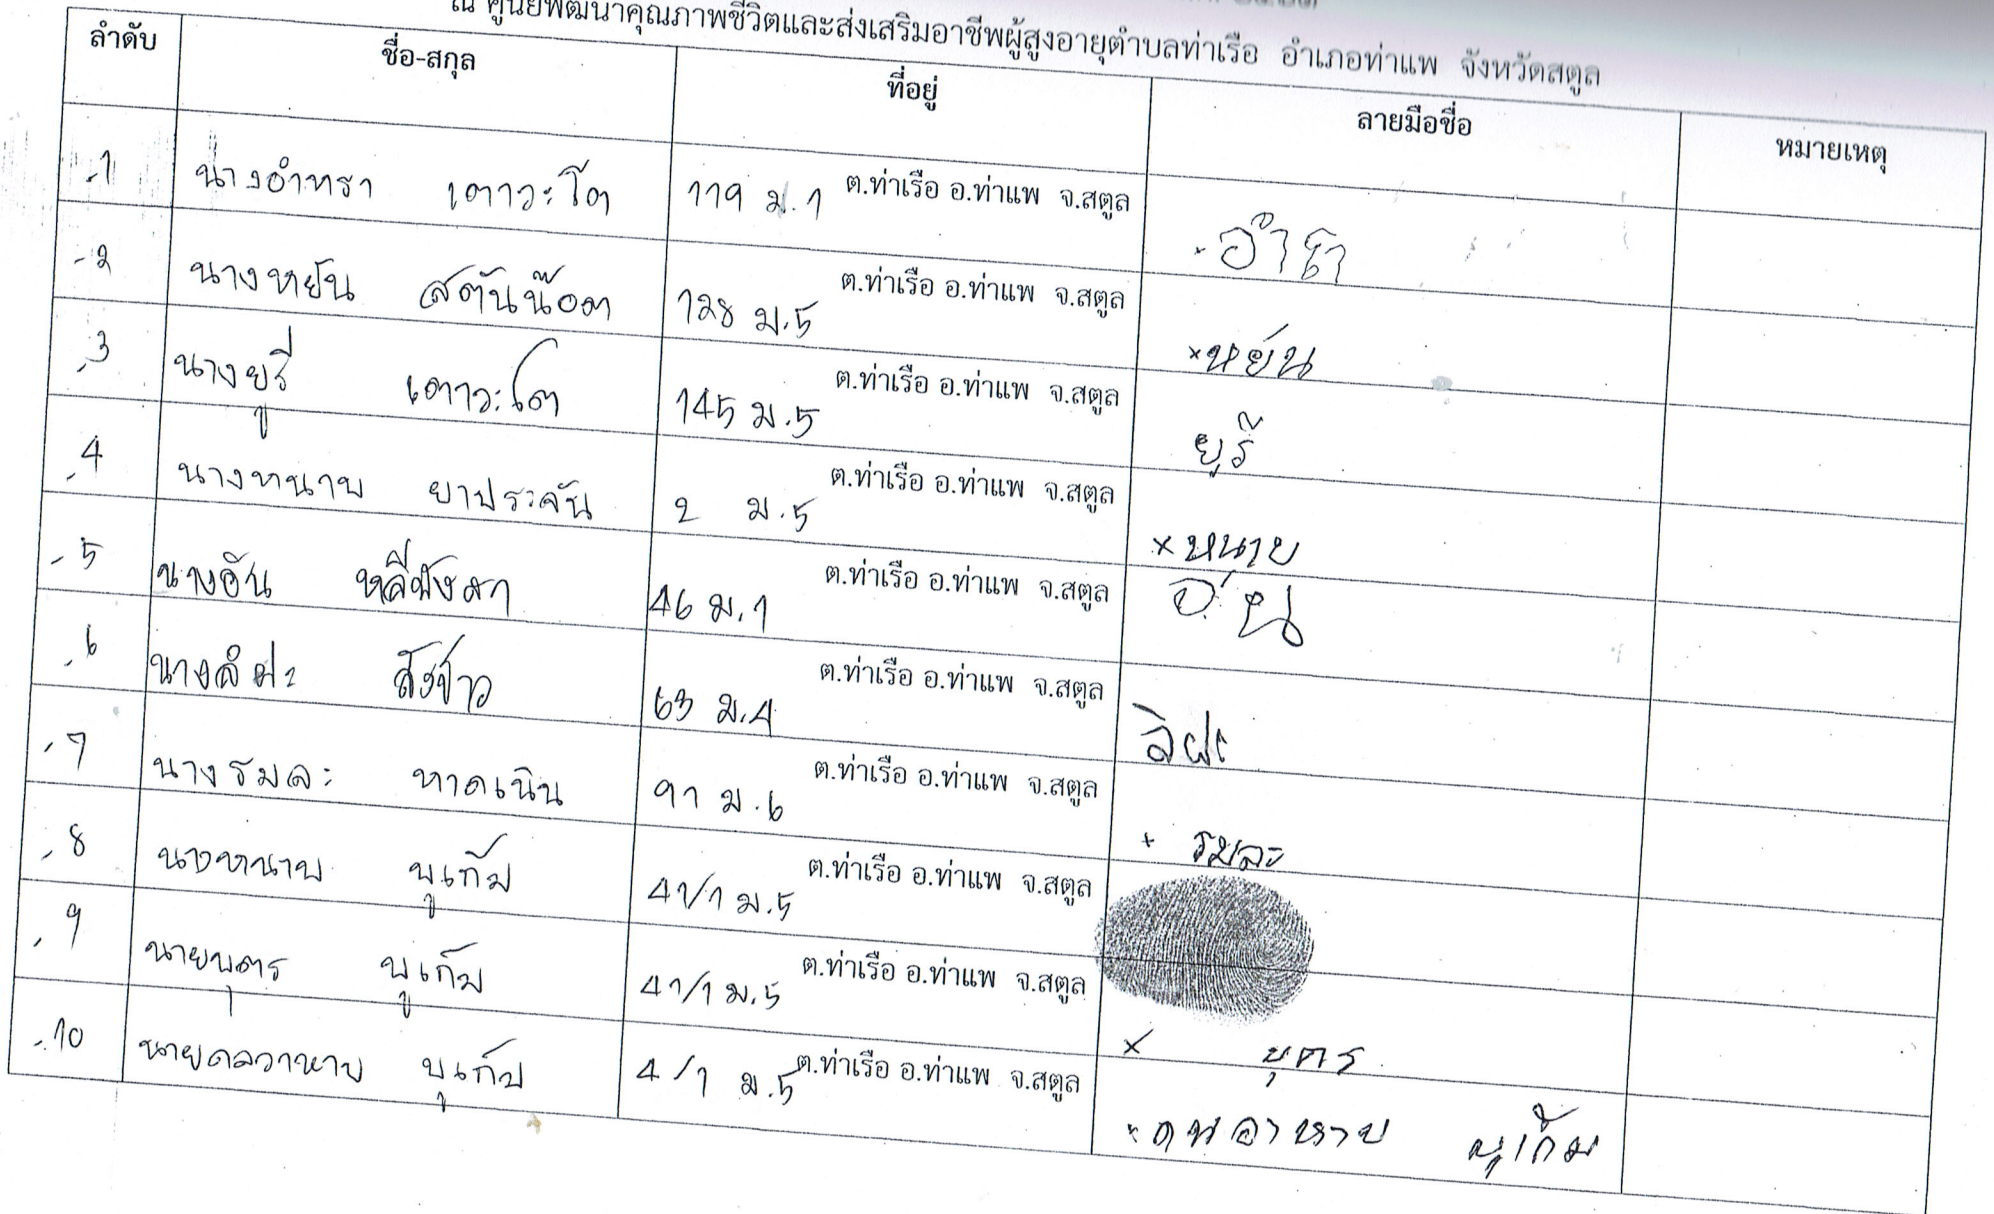 ณ ศูนย์พัฒนาคุณภาพชีวิตและส่งเสริมอาชีพผู้สูงอายุตำบลท่าเรือ อำเภอท่าแพ จังหวัดสตูล
ลำดับ ชื่อ-สกุล ที่อยู่ ลายมือชื่อ หมายเหตุ
1 นางอำทรา เตาวะโต 119 ม.1 ต.ท่าเรือ อ.ท่าแพ จ.สตูล
2 นางหยัน สตันน๊อต 128 ม.5 ต.ท่าเรือ อ.ท่าแพ จ.สตูล ×หยัน
3 นางยูรี เตาวะโต 145 ม.5 ต.ท่าเรือ อ.ท่าแพ จ.สตูล ยูรี
4 นางหนาบ ยาประจัน 2 ม.5 ต.ท่าเรือ อ.ท่าแพ จ.สตูล × หนาบ
5 นางอัน หลีหังสา 46 ม.1 ต.ท่าเรือ อ.ท่าแพ จ.สตูล
6 สังข์าว 63 ม.4 ต.ท่าเรือ อ.ท่าแพ จ.สตูล
7 นางรมละ หาดเนิน 91 ม.6 ต.ท่าเรือ อ.ท่าแพ จ.สตูล + รมละ
8 นางหนาบ บูเก็ม 41/1 ม.5 ต.ท่าเรือ อ.ท่าแพ จ.สตูล
9 นายบุตร บูเก็ม 41/1 ม.5 ต.ท่าเรือ อ.ท่าแพ จ.สตูล × บุตร
10 นายดลวาหาบ บูเก็ม 4/1 ม.5 ต.ท่าเรือ อ.ท่าแพ จ.สตูล บูเก็ม